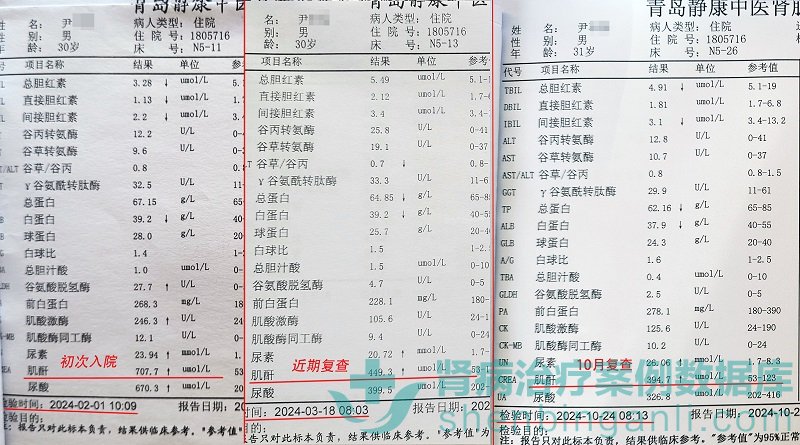 青岛静康中医
尹
病人类型: 住院
别: 男
住院号: 1805716
龄: 30岁
床 号: N5-11
项目名称 结果 单位 参考
总胆红素 3.28 ↓ umol/L 5.1
直接胆红素 1.13 ↓ umol/L 1.7
间接胆红素 2.2 ↓ umol/L 3.4
谷丙转氨酶 12.2 U/L 0-4
谷草转氨酶 9.6 U/L 0-3
ST/ALT 谷草/谷丙 0.8 0.8
γ谷氨酰转肽酶 32.5 U/L 11-
总蛋白 67.15 g/L 65-
白蛋白 39.2 ↓ g/L 40-
球蛋白 28.0 g/L 20-
白球比 1.4 1-
总胆汁酸 1.0 umol/L 0-
谷氨酸脱氢酶 27.7 ↑ U/L 0-
前白蛋白 268.3 mg/L 180
肌酸激酶 246.3 ↑ U/L 24-
K-MB 肌酸酶同工酶 12.1 U/L 0-
尿素 23.94 ↑ mmol/L
初次入院
CREA 肌酐 707.7 ↑ umol/L
尿酸 670.3 ↑ umol/L
检验时间: 2024-02-01 10:09 报告日期: 202
检验目的:
报告只对此标本负责, 结果供临床参考. "参考值"
青岛静康中医
尹
病人类型: 住院
别: 男
住院号: 1805716
龄: 30岁
床 号: N5-13
项目名称 结果 单位 参考值
总胆红素 5.49 umol/L 5.1-1
直接胆红素 2.12 umol/L 1.7-
间接胆红素 3.4 umol/L 3.4-
谷丙转氨酶 25.8 U/L 0-41
谷草转氨酶 19.1 U/L 0-37
谷草/谷丙 0.7 ↓ 0.8-
γ谷氨酰转肽酶 33.3 U/L 11-
总蛋白 64.85 ↓ g/L 65-8
白蛋白 39.2 ↓ g/L 40-55
球蛋白 25.7 g/L 20-4
白球比 1.5 1-2.
总胆汁酸 1.5 umol/L 0-10
谷氨酸脱氢酶 4.7 U/L 0-5
前白蛋白 228.1 mg/L 180-
肌酸激酶 105.6 U/L 24-1
肌酸酶同工酶 9.4 U/L 0-24
尿素 20.72 ↑ mmol/L 1.7-
近期复查
肌酐 449.3 ↑ umol/L 53-1
尿酸 399.5 umol/L 202-
时间: 2024-03-18 08:03 报告日期: 202
目的:
报告只对此标本负责, 结果供临床参考. "参考值"
青岛静康中医肾
姓 尹
病人类型: 住院
性别: 男
住院号: 1805716
年龄: 31岁
床 号: N5-26
代号 项目名称 结果 单位 参考值
TBIL 总胆红素 4.91 ↓ umol/L 5.1-19
DBIL 直接胆红素 1.81 umol/L 1.7-6.8
IBIL 间接胆红素 3.1 ↓ umol/L 3.4-13.2
ALT 谷丙转氨酶 12.8 U/L 0-41
AST 谷草转氨酶 10.7 U/L 0-37
AST/ALT 谷草/谷丙 0.8 0.8-1.5
GGT γ谷氨酰转肽酶 29.9 U/L 11-61
TP 总蛋白 62.16 ↓ g/L 65-85
ALB 白蛋白 37.9 ↓ g/L 40-55
GLB 球蛋白 24.3 g/L 20-40
A/G 白球比 1.6 1-2.5
TBA 总胆汁酸 0.4 umol/L 0-10
GLDH 谷氨酸脱氢酶 2.5 U/L 0-5
PA 前白蛋白 278.1 mg/L 180-390
CK 肌酸激酶 125.6 U/L 24-190
CK-MB 肌酸酶同工酶 10.2 U/L 0-24
UN 尿素 26.06 ↑ mmol/L 1.7-8.3
10月复查
CREA 肌酐 394.7 umol/L 53-123
UA 尿酸 326.8 umol/L 202-416
检验时间: 2024-10-24 08:13 报告日期: 2024-10-2
检验目的:
*报告只对此标本负责, 结果供临床参考. "参考值"为95%正常
肾病治疗案例数据库
shenbinganli.com